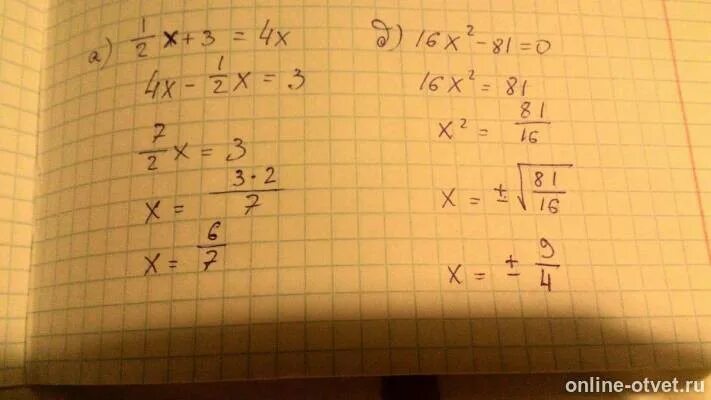 а) 1/2 x + 3 = 4x
4x - 1/2 x = 3
7/2 x = 3
x = 3·2/7
x = 6/7
д) 16x² - 81 = 0
16x² = 81
x² = 81/16
x = ±√(81/16)
x = ± 9/4
online-otvet.ru